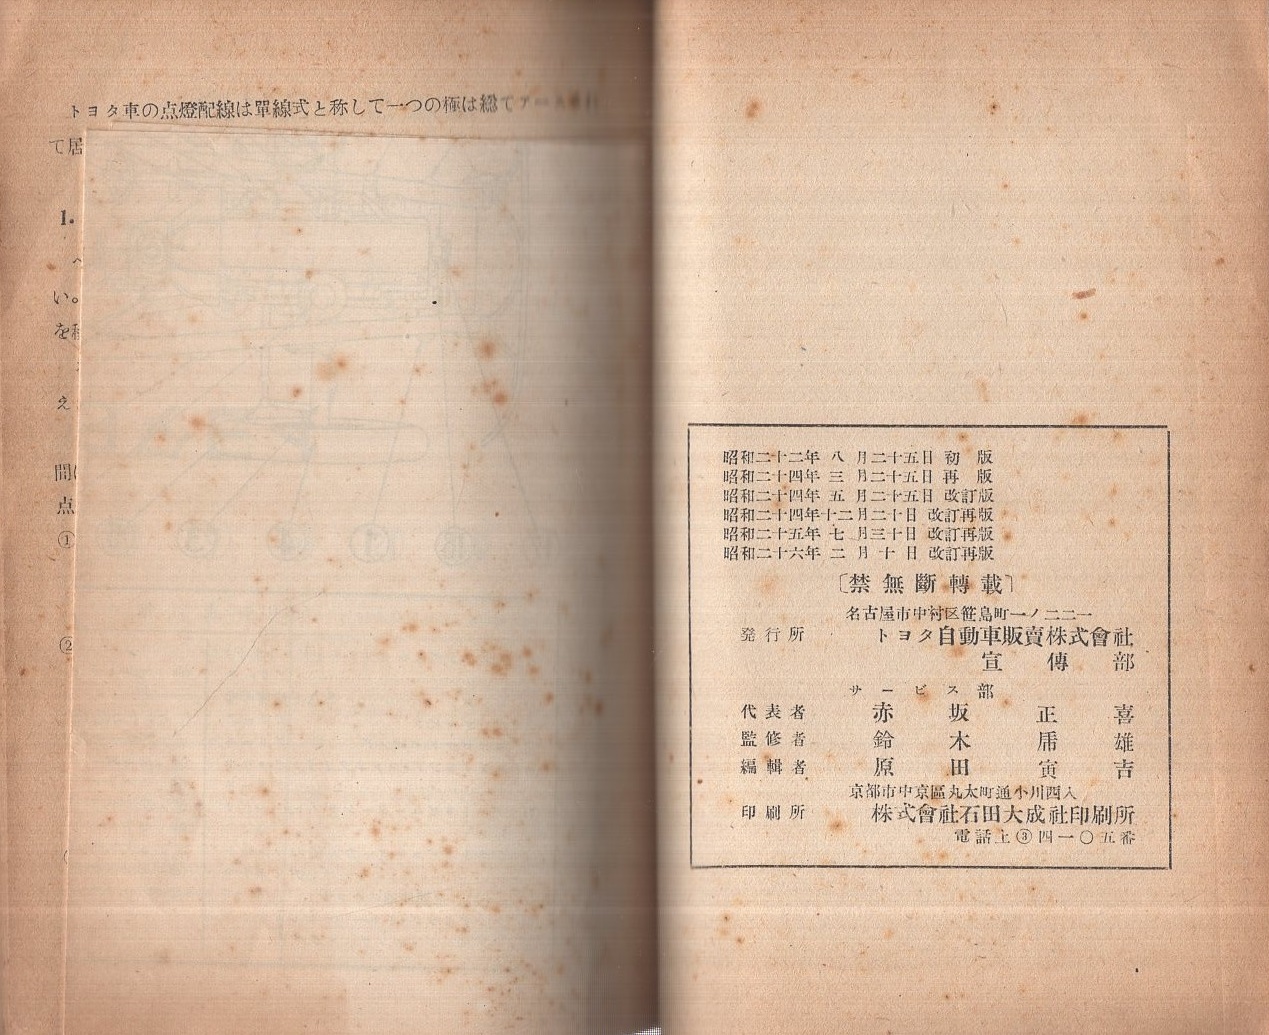 トヨタ車の点燈配線は單線式と称して一つの極は総てアース
て居
1.
い。
を
え
間
点
①
②
昭和二十二年 八 月二十五日 初 版
昭和二十四年 三 月二十五日 再 版
昭和二十四年 五 月二十五日 改訂版
昭和二十四年十二月二十日 改訂再版
昭和二十五年 七 月三十日 改訂再版
昭和二十六年 二 月 十 日 改訂再版
〔禁無斷轉載〕
名古屋市中村区笹島町一ノ二二一
発行所 トヨタ自動車販賣株式會社
宣傳部
サービス部
代表者 赤坂正喜
監修者 鈴木庸雄
編輯者 原田寅吉
京都市中京區丸太町通小川西入
印刷所 株式會社石田大成社印刷所
電話上③四一〇五番